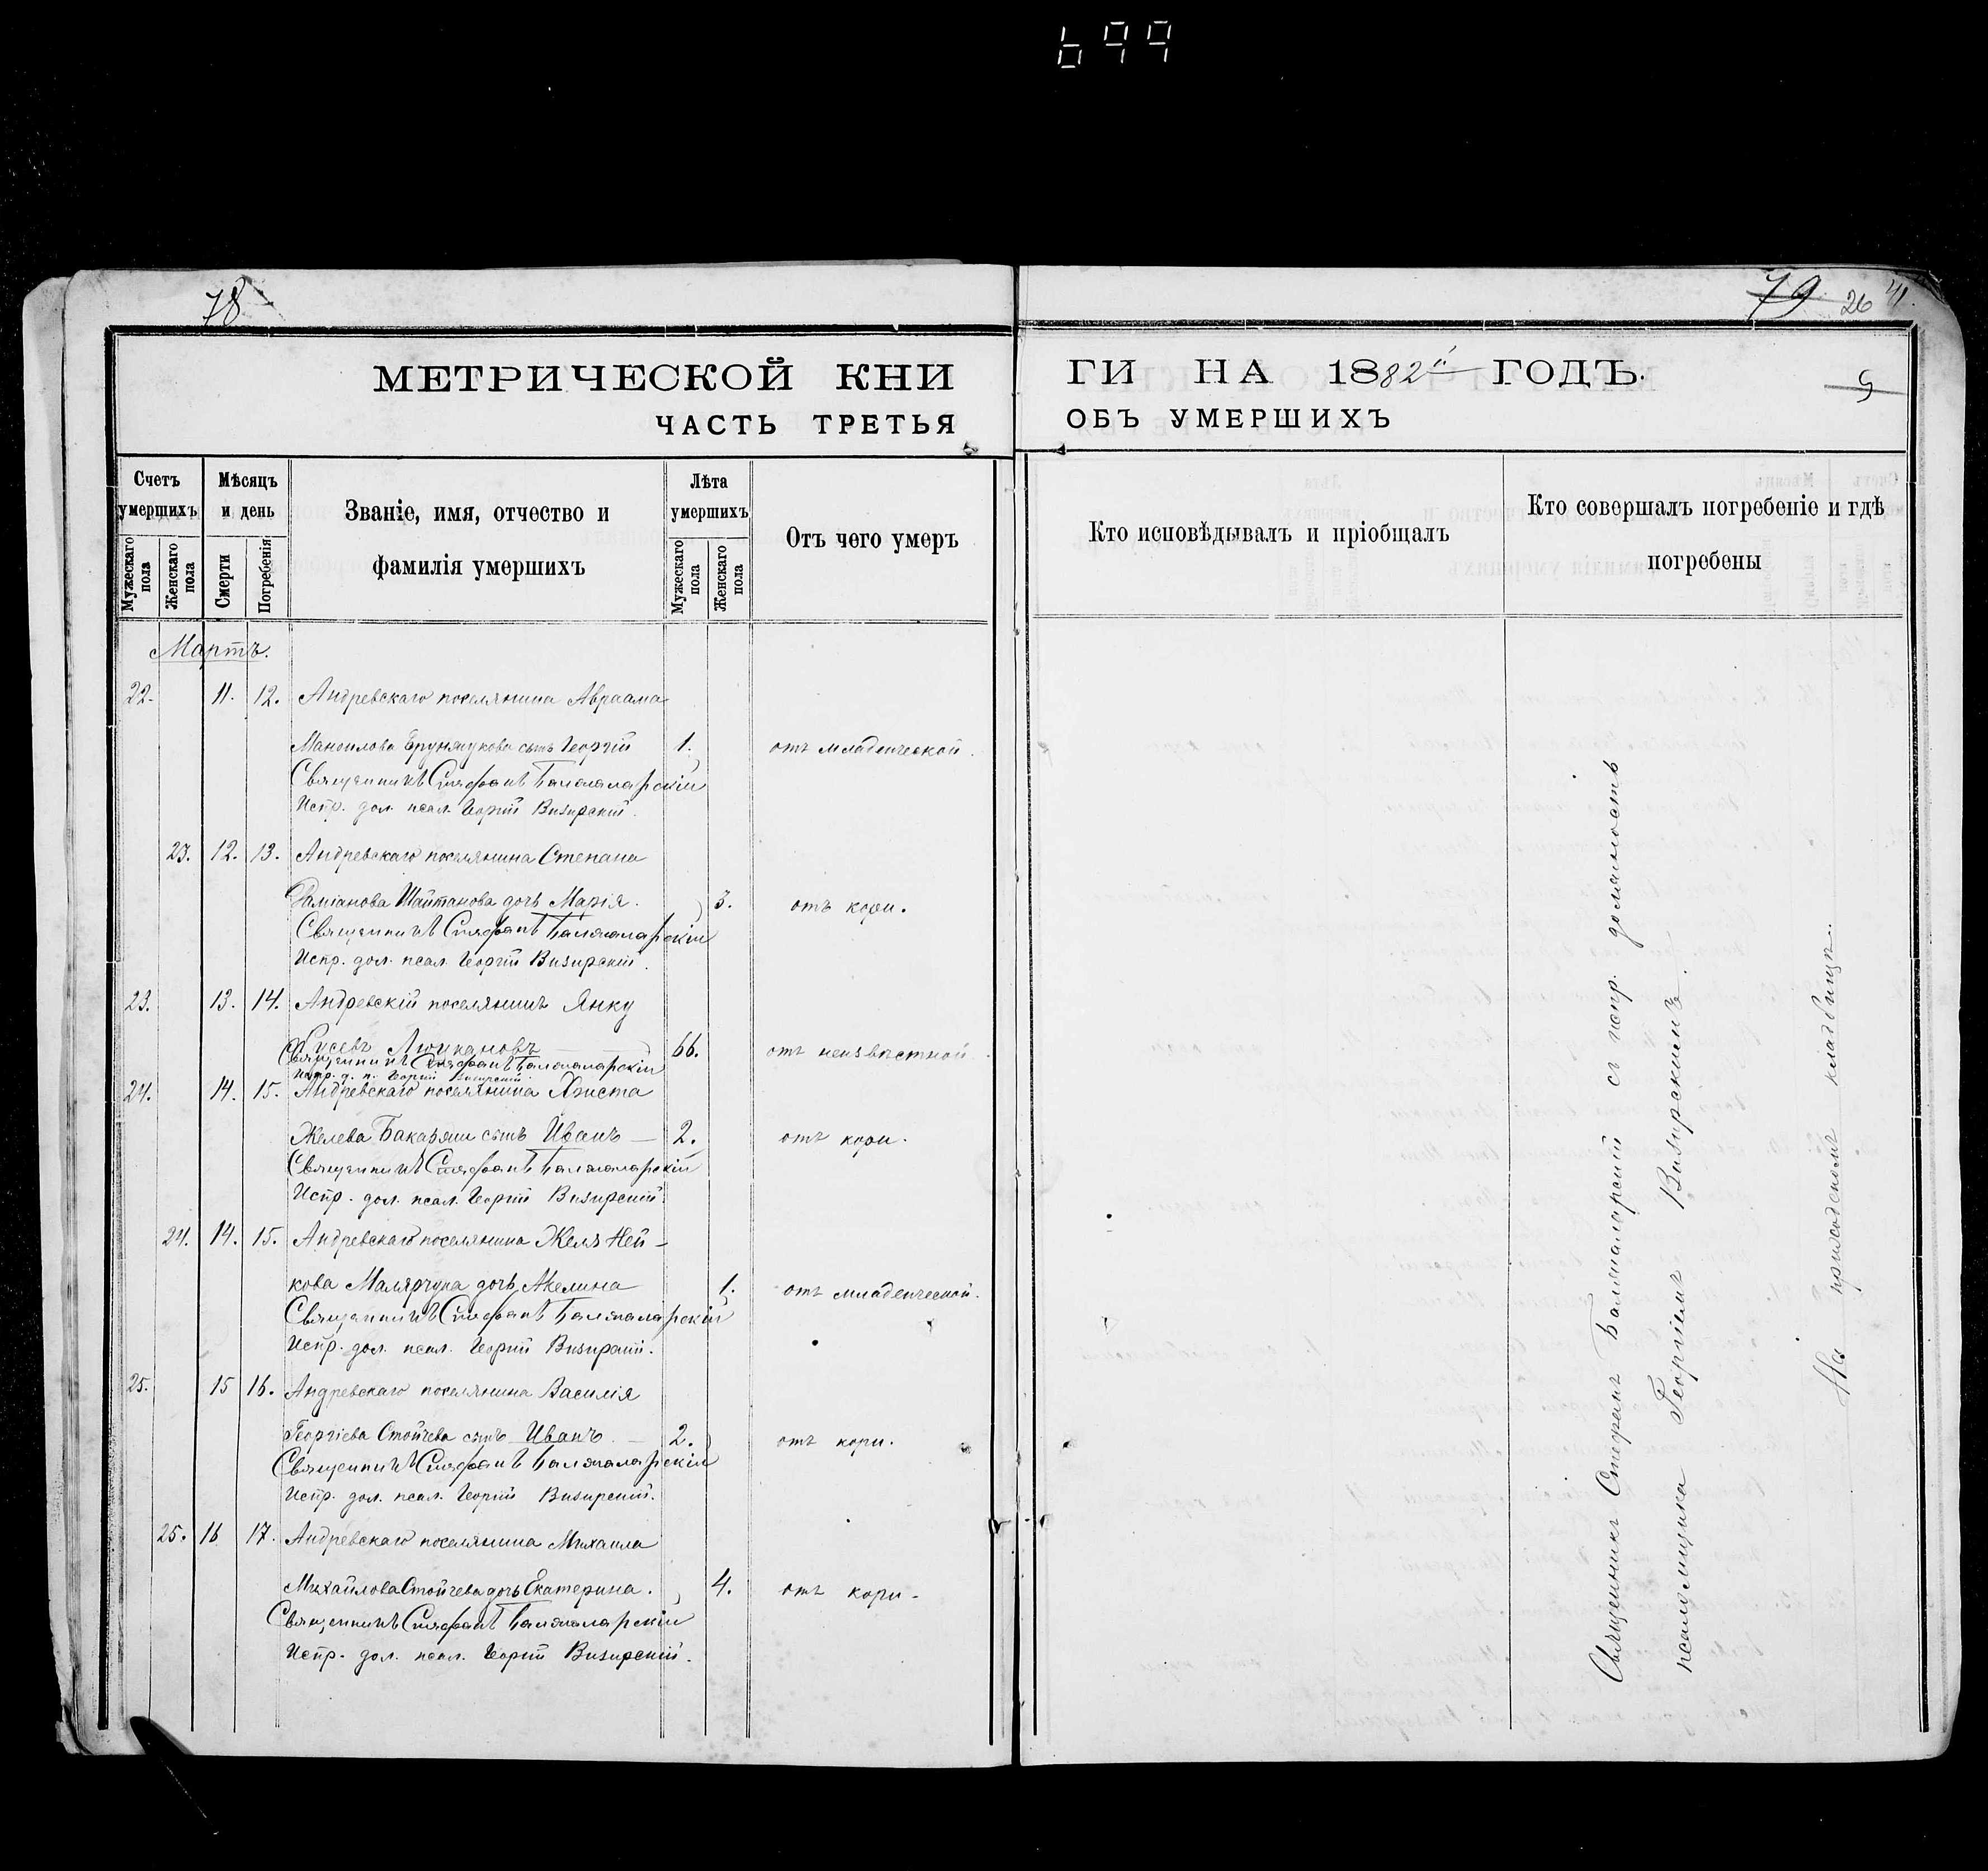 699
78
МЕТРИЧЕСКОЙ КНИ
ЧАСТЬ ТРЕТЬЯ
Счетъ умершихъ
Мужескаго пола
Женскаго пола
Мѣсяцъ и день
Смерти
Погребенія
Званіе, имя, отчество и
фамилія умершихъ
Лѣта умершихъ
Мужескаго пола
Женскаго пола
Отъ чего умеръ
Мартъ.
22. 11. 12. Андревскаго поселянина Авраама
Маноилова сынъ Георгій 1. отъ младенческой.
Священникъ Стефанъ Балжаларскій
Испр. дол. псал. Георгій Визирскій.
23. 12. 13. Андревскаго поселянина Степана
Даміанова Шайтанова дочь Марія. 3. отъ кори.
Священникъ Стефанъ Балжаларскій
Испр. дол. псал. Георгій Визирскій.
23. 13. 14. Андревскій поселянинъ Янку
66. отъ неизвѣстной
Священникъ Стефанъ Балжаларскій
Испр. д. п. Георгій Визирскій.
24. 14. 15. Андревскаго поселянина Христа
Желева сынъ Иванъ — 2. отъ кори.
Священникъ Стефанъ Балжаларскій
Испр. дол. псал. Георгій Визирскій.
24. 14. 15. Андревскаго поселянина Желъ Ней-
кова дочь 1. отъ младенческой.
Священникъ Стефанъ Балжаларскій
Испр. дол. псал. Георгій Визирскій.
25. 15 16. Андревскаго поселянина Василія
Георгіева Стойчева сынъ Иванъ. — 2. отъ кори.
Священникъ Стефанъ Балжаларскій
Испр. дол. псал. Георгій Визирскій.
25. 16 17. Андревскаго поселянина Михаила
Михайлова Стойчева дочь Екатерина. 4. отъ кори.
Священникъ Стефанъ Балжаларскій
Испр. дол. псал. Георгій Визирскій.
79 26 41.
ГИ НА 1882й ГОДЪ.
9
ОБЪ УМЕРШИХЪ
Кто исповѣдывалъ и пріобщалъ
Кто совершалъ погребеніе и гдѣ
погребены
Священникъ Стефанъ Балжаларскій съ испр. должность
псаломщика Георгіемъ Визирскимъ.
На приходскомъ кладбищѣ.